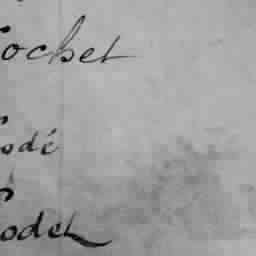 ochet
odé
odet